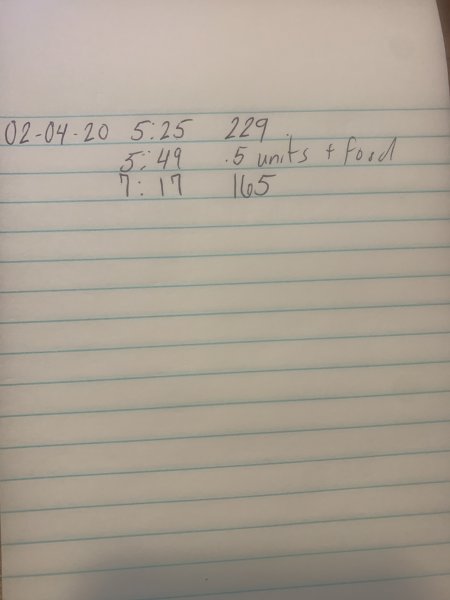 02-04-20 5:25 229
5:49 .5 units + food
7:17 165